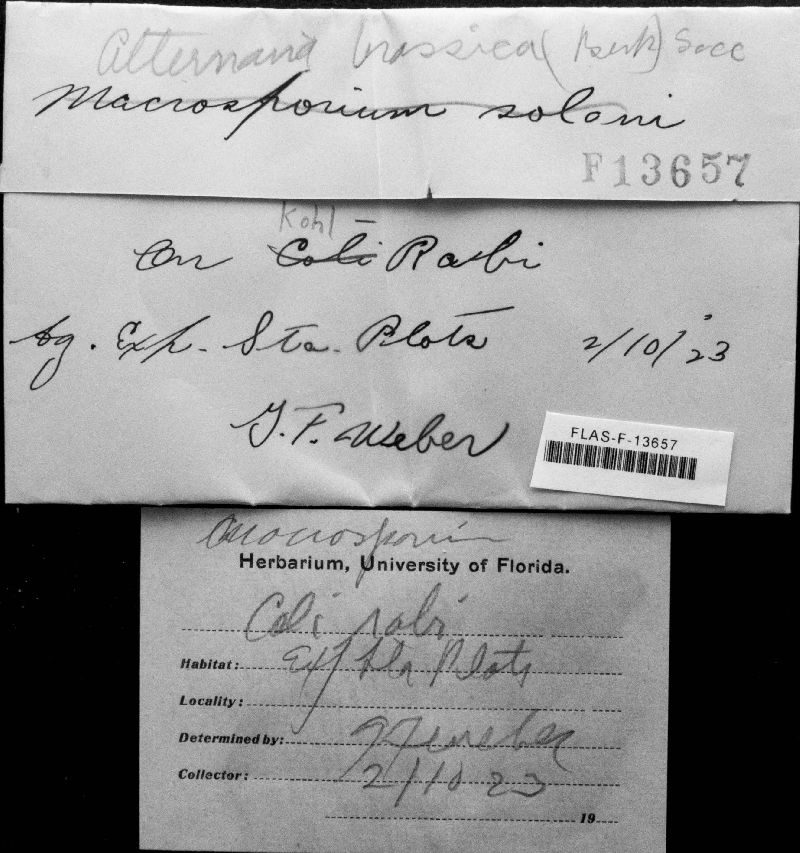 Alternaria brassica (Berk) Sacc
Macrosporium solani
F13657
Kohl
On Coli-Rabi
Ag. Exp. Sta. Plots 2/10/23
G. F. Weber
FLAS-F-13657
Macrosporium
Herbarium, University of Florida.
Coli rabi
Habitat: Exp Sta Plots
Locality:
Determined by: G F Weber
Collector: 2/10 23
19